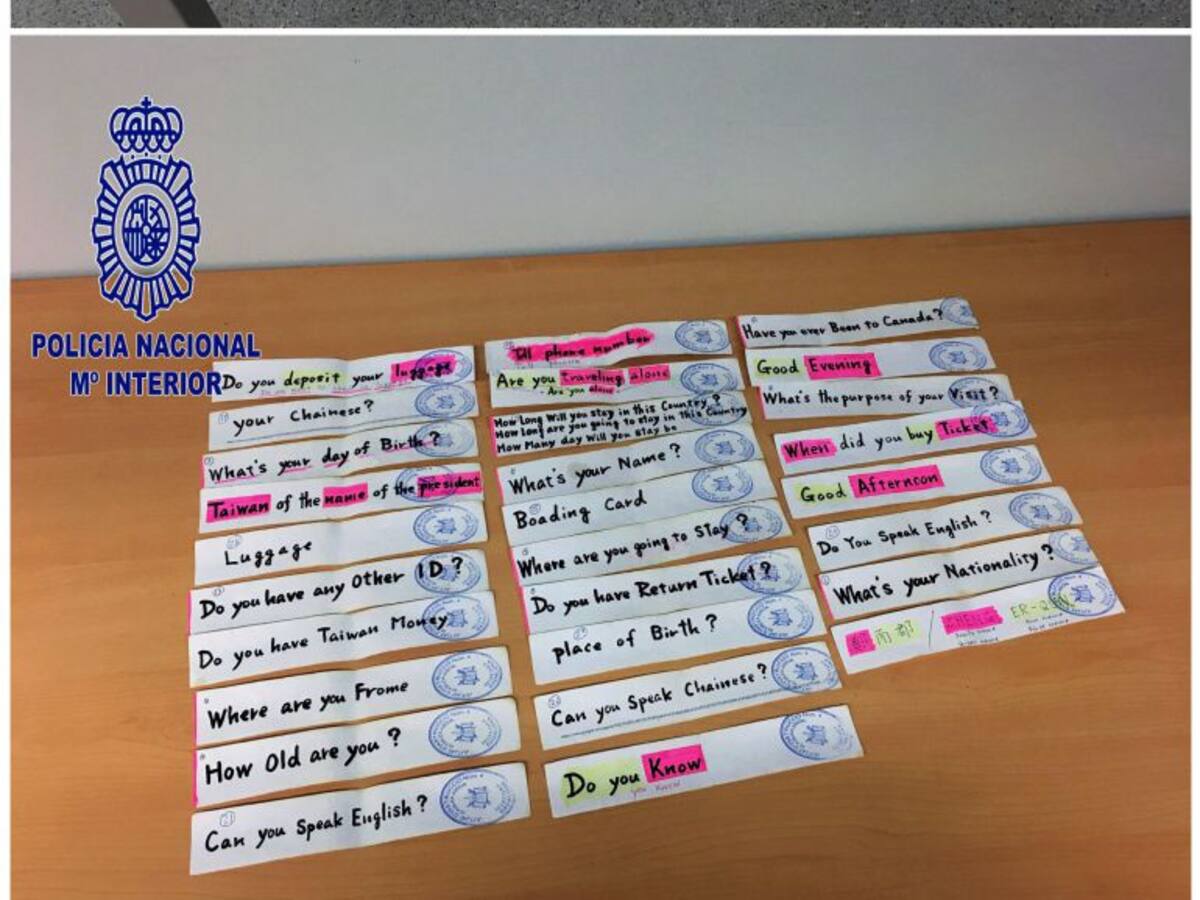 POLICIA NACIONAL
Mº INTERIOR
Do you deposit your luggage
your Chainese?
What's your day of Birth?
Taiwan of the name of the president
Luggage
Do you have any Other ID?
Do you have Taiwan Money
Where are you Frome
How Old are you?
Can you Speak English?
Tll phone number
Are you traveling alone
Are you alone
How Long Will you stay in this Country?
How long are you going to stay in this Country
How Many day Will you stay be
What's your Name?
Boading Card
Where are you going to Stay?
Do you have Return Ticket?
place of Birth?
Can you Speak Chainese?
Do you Know
you know
Have you ever Been to Canada?
Good Evening
What's the purpose of your Visit?
When did you buy Ticket
Good Afternoon
Do You Speak English?
What's your Nationality?
南都 / CHENG ER-